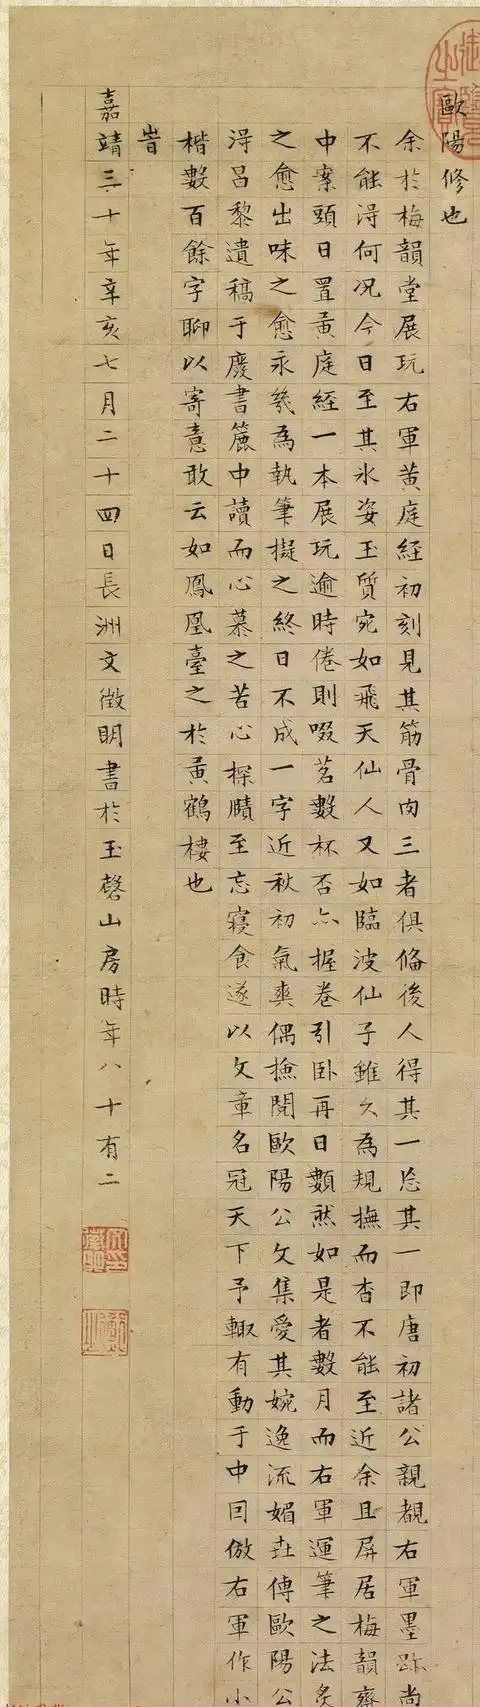 歐陽修也
余於梅韻堂展玩右軍黃庭經初刻見其筋骨肉三者俱偹後人得其一忘其一即唐初諸公親覩右軍墨跡尚
不能淂何况今日至其氷姿玉質宛如飛天仙人又如臨波仙子雖久為規撫而杳不能至近余且屏居梅韻齋
中案頭日置黃庭經一本展玩逾時倦則啜茗數杯否亦握卷引卧再日顙然如是者數月而右軍運筆之法炙
之愈出味之愈永㡬為執筆擬之終日不成一字近秋初氣爽偶撿閱歐陽公文集愛其婉逸流媚世傳歐陽公
淂昌黎遺稿于廢書簏中讀而心慕之苦心探賾至忘寝食遂以文章名冠天下予輙有動于中囙倣右軍作小
楷數百餘字聊以寄意敢云如鳳凰臺之於黃鶴樓也
旹
嘉靖三十年辛亥七月二十四日長洲文徵明書於玉磬山房時年八十有二